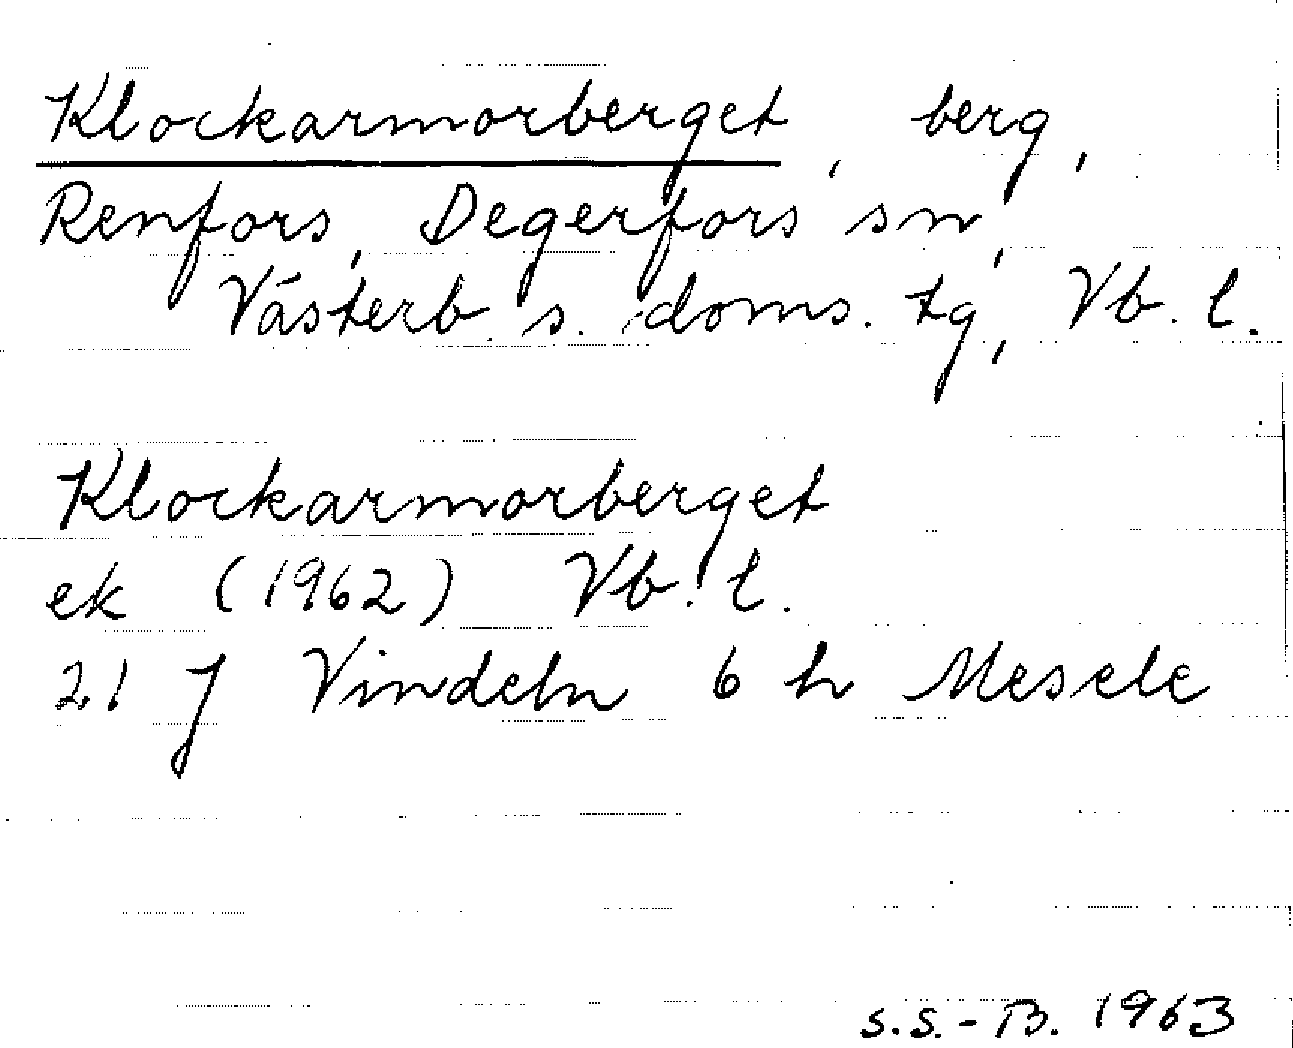 Klockarmorberget, berg,
Renfors, Degerfors sn,
Västerb. s. doms. tg, Vb. l.
Klockarmorberget
ek (1962) Vb. l.
21 J Vindeln 6 h Mesele
S.S.-B. 1963